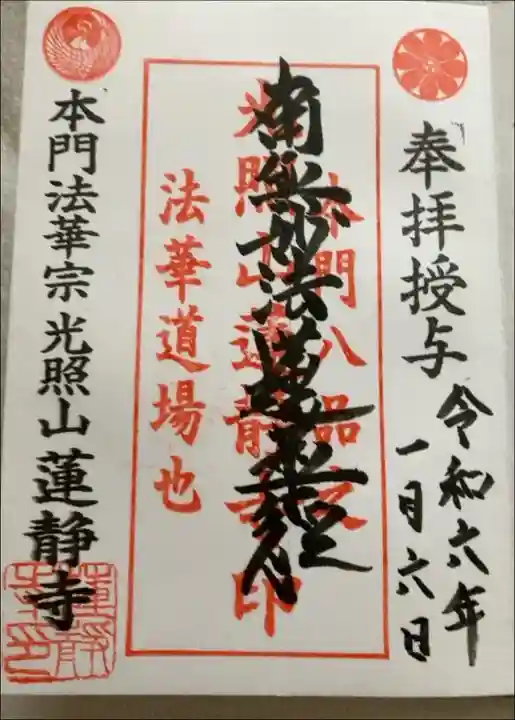 奉拝授与
令和六年
一月六日
本門八品之
南無妙法蓮華経
光照山蓮静寺印
法華道場也
本門法華宗光照山蓮静寺
蓮静寺印